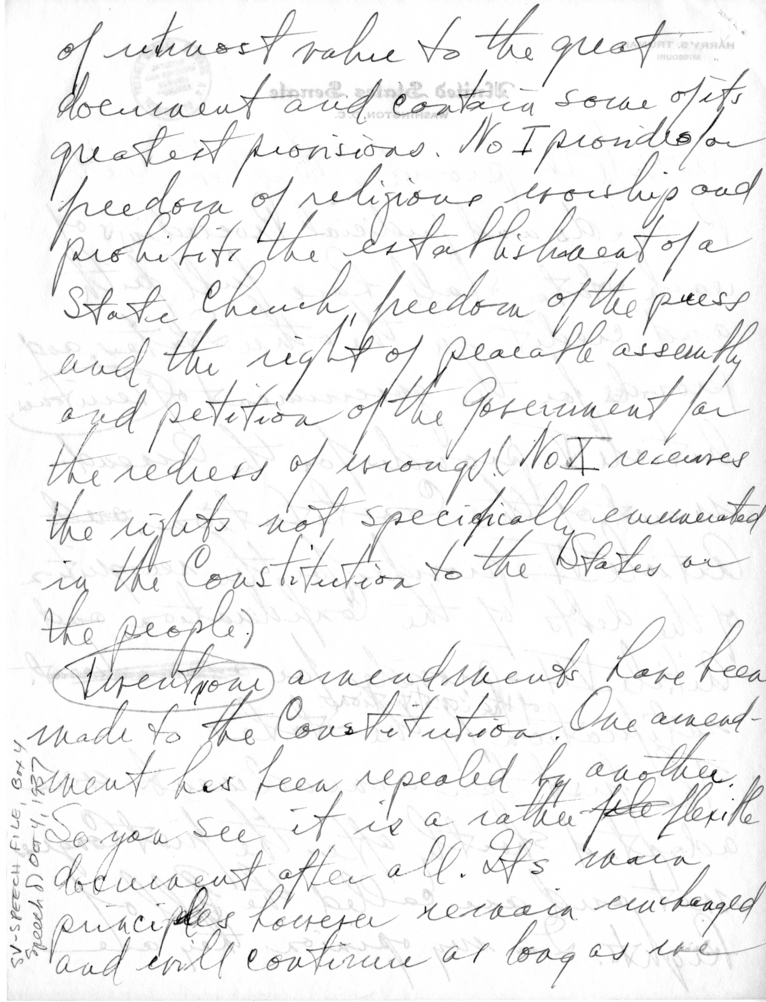 of utmost value to the great
document and contain some of its
greatest provisions. No I provides for
freedom of religious worship and
prohibits the establishment of a
State Church, freedom of the press
and the right of peacable assembly
and petition of the Government for
the redress of wrongs! (No X reserves
the rights not specifically enumerated
in the Constitution to the States or
the people.)
Twenty one amendments have been
made to the Constitution. One amend-
ment has been repealed by another.
So you see it is a rather fle flexible
document after all. It's main
principles however remain unchanged
and will continue as long as we
SV-SPEECH FILE, Box 4
Speech 8) Oct 4, 1937
HARRY S. TRUMAN
MISSOURI
United States Senate
WASHINGTON, D.C.